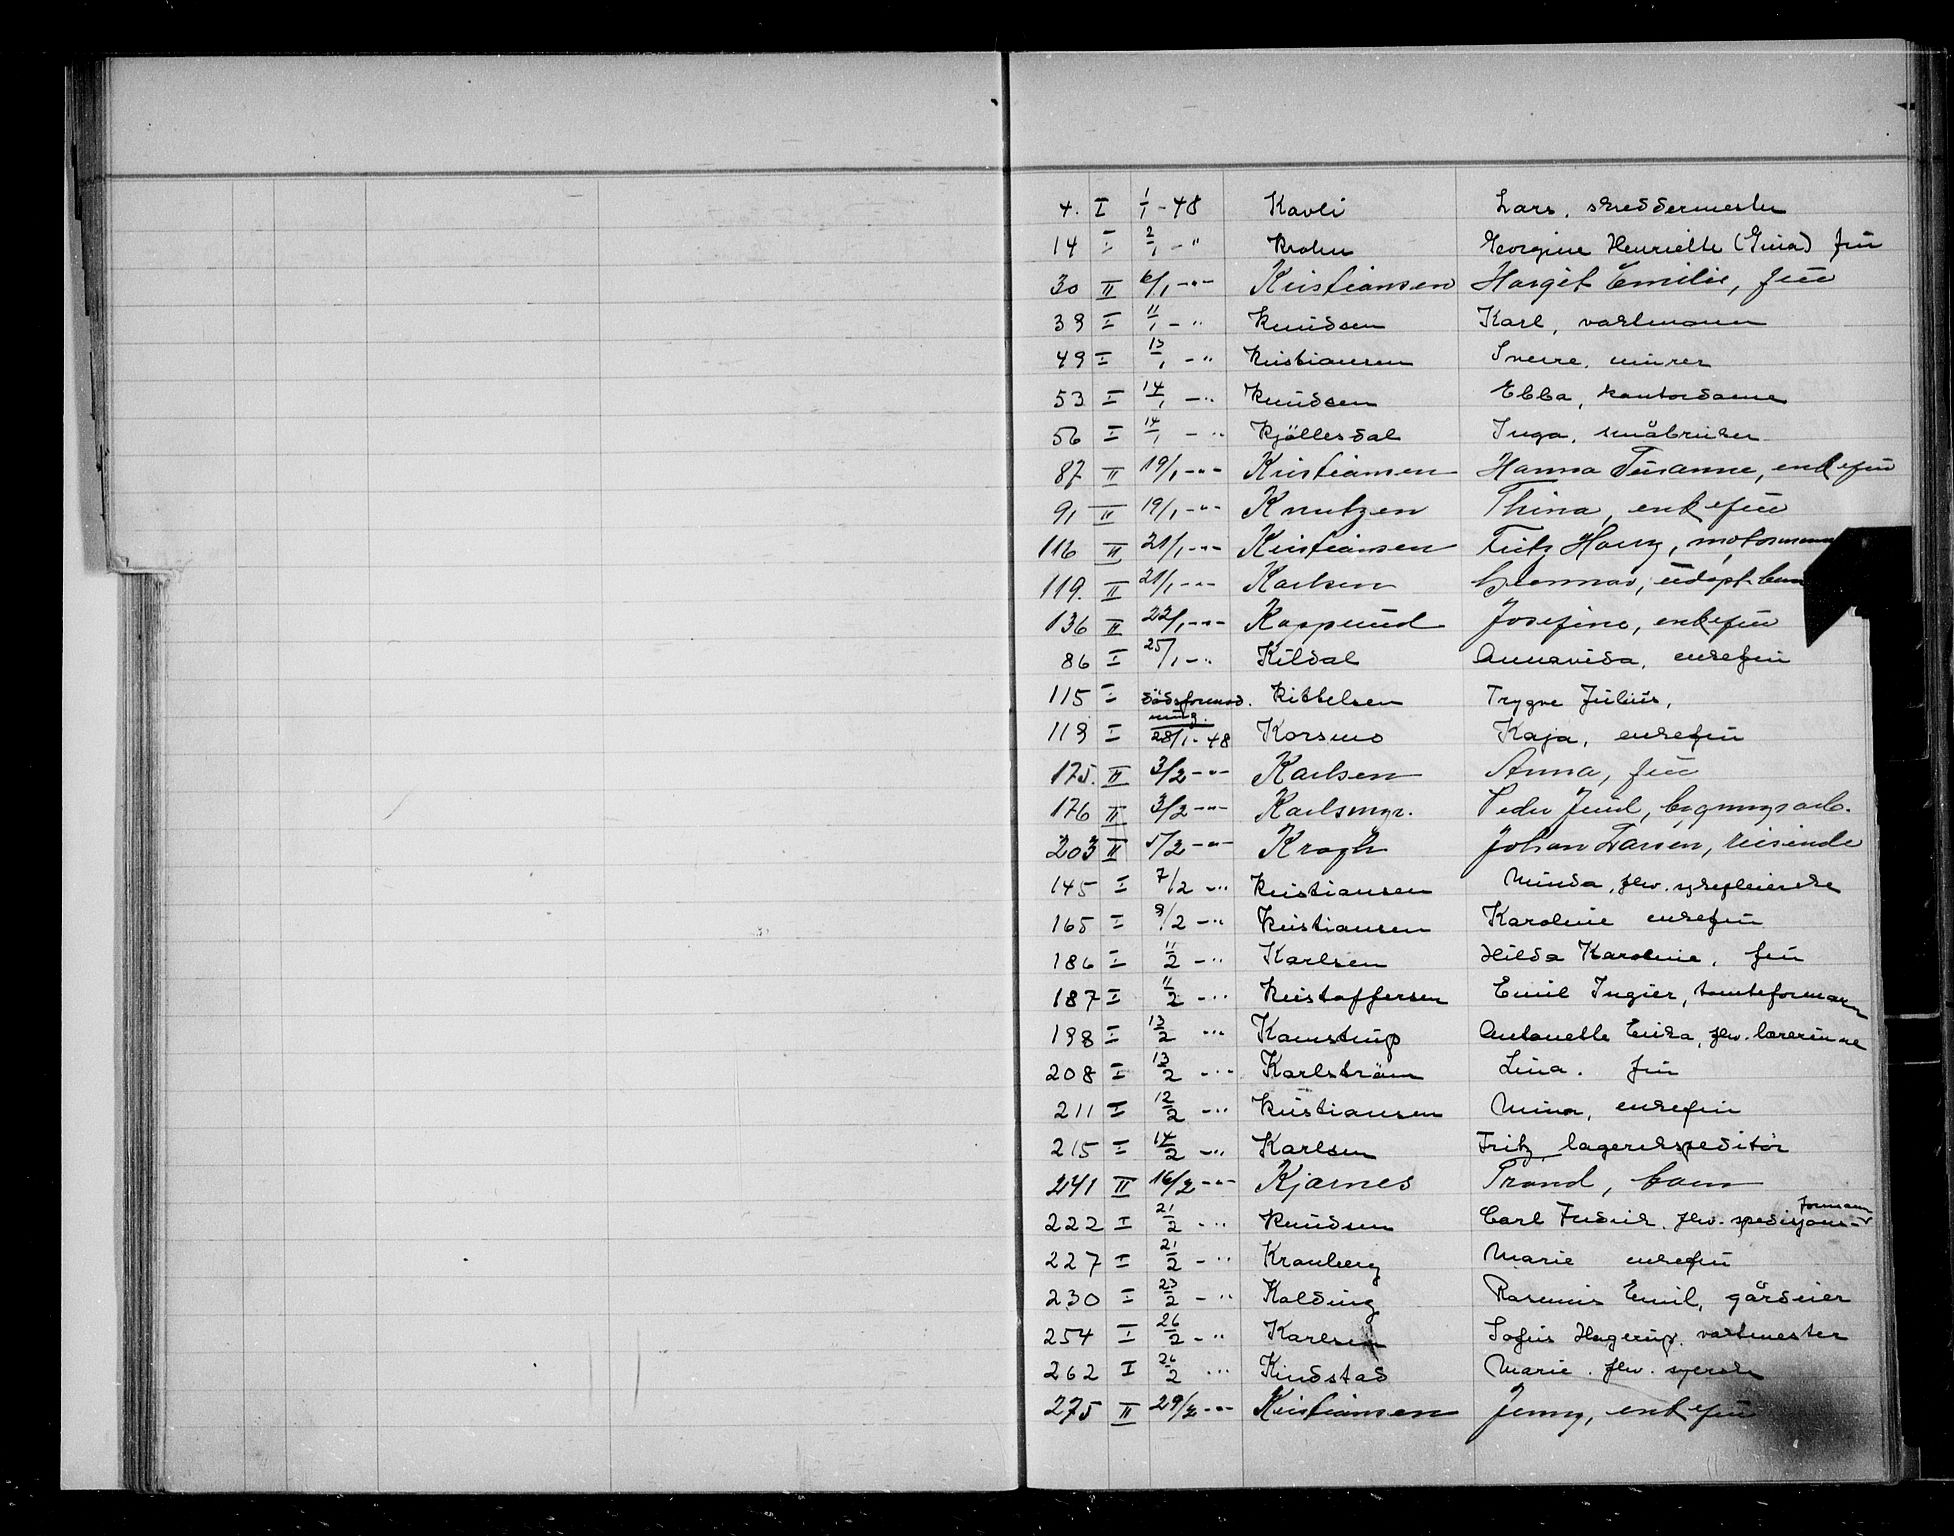 4. I 1/1 - 48 Kavli Lars, skreddermester
14 I 2/1 - " Krohn Georgine Henriette (Gina) frü
30 II 6/1 -"- Kristiansen Margit Emilie, frü
39 I 11/1 - " Knudsen Karl, vaktmann
49 I 13/1 - " Kristiansen Sverre, murer
53 I 14/1 - " Knudsen Ebba, kontordame
56 I 14/1 - " Kjöllesdal Inga, småbruker
87 II 19/1 -"- Kristiansen Hanna Susanne, enkefrü
91 II 19/1 -"- Knutzen Thina, enkefrü
116 II 21/1 -"- Kristiansen Fritz Harry, motormann
119. II 21/1 -"- Karlsen adopt. barn
136 II 22/1 -"- Kaspurud Josefine, enkefrü
86 I 25/1 - " Kildal Annavida, enkefrü
115 I dödsformod. Kittelsen Trygve Julius,
ning.
119 I 28/1 - 48 Korsmo Kaja, enkefrü
175. II 3/2 -"- Karlsen Anna, frü
176 II 3/2 -"- Karlsmyr. Peder Juul, bygningsarb.
203 II 5/2 -"- Krogh Johan Larsen, reisende
145 I 7/2 - " Kristiansen Minda, fhv. sykepleierske
165 I 9/2 - " Kristiansen Karoline enkefrü
186 I 11/2 - " Karlsen Hilda Karoline, frü
187 I 11/2 - " Kristoffersen Emil Ingier, tomteformann
198 I 13/2 " Kamstrup Antonette Erika, fhv. lærerinne
208 I 13/2 - " Karlström Lina. frü
211 I 12/2 - " Kristiansen Mina, enkefrü
215 I 14/2 - " Karlsen Fritz, lagerekspeditör
241 II 16/2 -"- Kjærnes Trond, barn
222 I 21/2 - " Knudsen Carl Fredrik. fhv. spedisjons- formann
227 I 21/2 - " Kronberg Marie enkefrü
230 I 23/2 - " Kolding Rasmus Emil, gårdeier
254 I 26/2 - " Karlsen Sofus Hagerup. vaktmester
262 I 26/2 " Kindstad Marie. fhv. syerske
275 II 29/2 -"- Kristiansen Jenny, enkefrü